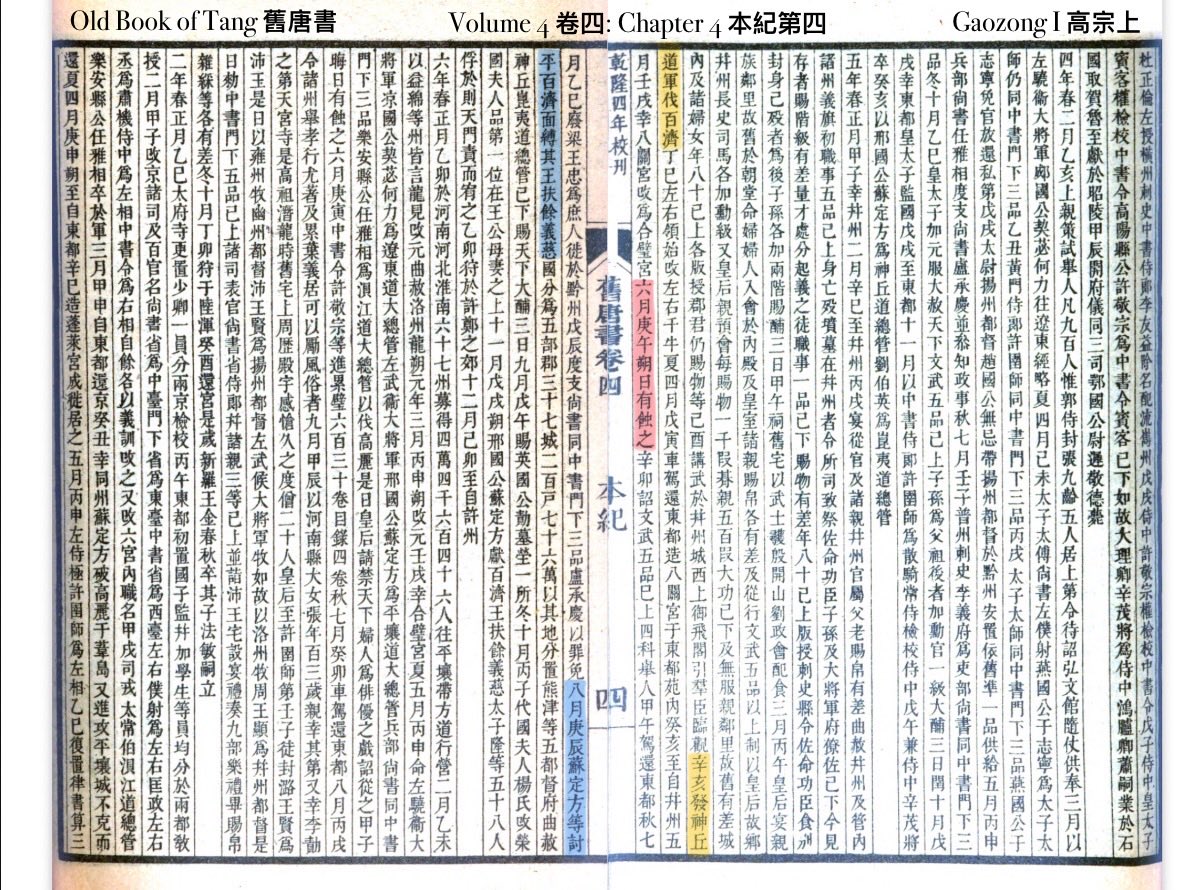 Old Book of Tang 舊唐書 Volume 4 卷四: Chapter 4 本紀第四 Gaozong I 高宗上
杜正倫左授橫州刺史中書侍郎李友益除名配流巂州戊戌侍中許敬宗權檢校中書令戊子侍中皇太子
賓客權檢校中書令高陽縣公許敬宗爲中書令賓客已下如故大理卿辛茂將爲侍中鴻臚卿蕭嗣業於石
國取賀魯至獻於昭陵甲辰開府儀同三司鄂國公尉遲敬德薨
四年春二月乙亥上親策試舉人凡九百人惟郭待封張九齡五人居上第令待詔弘文館隨仗供奉三月以
左驍衞大將軍郕國公契苾何力往遼東經略夏四月己未太子太傅尚書左僕射燕國公于志寧爲太子太
師仍同中書門下三品乙丑黃門侍郎許圉師同中書門下三品丙戌太子太師同中書門下三品燕國公于
志寧免官放還私第戊戌太尉揚州都督趙國公無忌帶揚州都督於黔州安置依舊準一品供給五月丙申
兵部尚書任雅相度支尚書盧承慶並參知政事秋七月壬子普州刺史李義府爲吏部尚書同中書門下三
品冬十月乙巳皇太子加元服大赦天下文武五品已上子孫爲父祖後者加勳官一級大酺三日閏十月戊
戌幸東都皇太子監國戊戌至東都十一月以中書侍郎許圉師爲散騎常侍檢校侍中戊午兼侍中辛茂將
卒癸亥以邢國公蘇定方爲神丘道總管劉伯英爲嵎夷道總管
五年春正月甲子幸幷州二月辛巳至幷州丙戌宴從官及諸親幷州官屬父老賜帛有差曲赦幷州及管內
諸州義旗初職事五品已上身亡殁墳墓在幷州者令所司致祭佐命功臣子孫及大將軍府僚佐已下今見
存者賜階級有差量才處分起義之徒職事一品已下賜物有差年八十已上版授刺史縣令佐命功臣食別
封身已殁者爲後子孫各加兩階賜酺三日甲午祠舊宅以武士彠殷開山劉政會配食三月丙午皇后宴親
族鄰里故舊於朝堂命婦婦人入會於內殿及皇室諸親賜帛各有差及從行文武五品以上制以皇后故鄉
幷州長史司馬各加勳級又皇后親預會每賜物一千段朞親五百段大功已下及無服親鄰里故舊有差城
內及諸婦女年八十已上各版授郡君仍賜物等己酉講武於幷州城西上御飛閣引羣臣臨觀辛亥發神丘
道軍伐百濟丁巳左右領始改左右千牛夏四月戊寅車駕還東都造八關宮于東都苑內癸亥至自幷州五
月壬戌幸八關宮改爲合璧宮六月庚午朔日有蝕之辛卯詔文武五品已上四科舉人甲午駕還東都秋七
乾隆四年校刊 舊唐書卷四 本紀 四
月乙巳廢梁王忠爲庶人徙於黔州戊辰度支尚書同中書門下三品盧承慶以罪免八月庚辰蘇定方等討
平百濟面縛其王扶餘義慈國分爲五部郡三十七城二百戸七十六萬以其地分置熊津等五都督府曲赦
神丘嵎夷道總管已下賜天下大酺三日九月戊午賜英國公勣墓塋一所冬十月丙子代國夫人楊氏改榮
國夫人品第一位在王公母妻之上十一月戊戌朔邢國公蘇定方獻百濟王扶餘義慈太子隆等五十八人
俘於則天門責而宥之乙卯狩於許鄭之郊十二月己卯至自許州
六年春正月乙卯於河南河北淮南六十七州募得四萬四千六百四十六人往平壤帶方道行營二月乙未
以益綿等州皆言龍見改元曲赦洛州龍朔元年二月丙申朔改元壬戌幸合璧宮夏五月丙申命左驍衞大
將軍凉國公契苾何力爲遼東道大總管左武衞大將軍邢國公蘇定方爲平壤道大總管兵部尚書同中書
門下三品樂安縣公任雅相爲浿江道大總管以伐高麗是日皇后請禁天下婦人爲俳優之戲詔從之甲子
晦日有蝕之六月庚寅中書令許敬宗等進累璧六百三十卷目錄四卷秋七月癸卯車駕還東都八月丙戌
令諸州舉孝行尤著及累葉義居可以勵風俗者九月甲辰以河南縣大女張年百三歲親幸其第又幸李勣
之第天宮寺是高祖潛龍時舊宅上周歷殿宇感愴久之度僧二十人皇后至許圉師第壬子徙封潞王賢爲
沛王是日以雍州牧幽州都督沛王賢爲揚州都督左武候大將軍牧如故以洛州牧周王顯爲幷州都督是
日勑中書門下五品已上諸司表官尚書省侍郎幷諸親三等已上並詣沛王宅設宴禮奏九部樂禮畢賜帛
雜綵等各有差冬十月丁卯狩于陸渾癸酉還宮是歲新羅王金春秋卒其子法敏嗣立
二年春正月乙巳太府寺更置少卿一員分兩京檢校丙午東都初置國子監幷加學生等員均分於兩都敎
授二月甲子改京諸司及百官名尚書省爲中臺門下省爲東臺中書省爲西臺左右僕射爲左右匡政左右
丞爲肅機侍中爲左相中書令爲右相自餘各以義訓改之又改六宮內職名甲戌司戎太常伯浿江道總管
樂安縣公任雅相卒於軍三月甲申自東都還京癸丑幸同州蘇定方破高麗于葦島又進攻平壤城不克而
還夏四月庚申朔至自東都辛巳造蓬萊宮成徙居之五月丙申左侍極許圉師爲左相乙巳復置律書算三